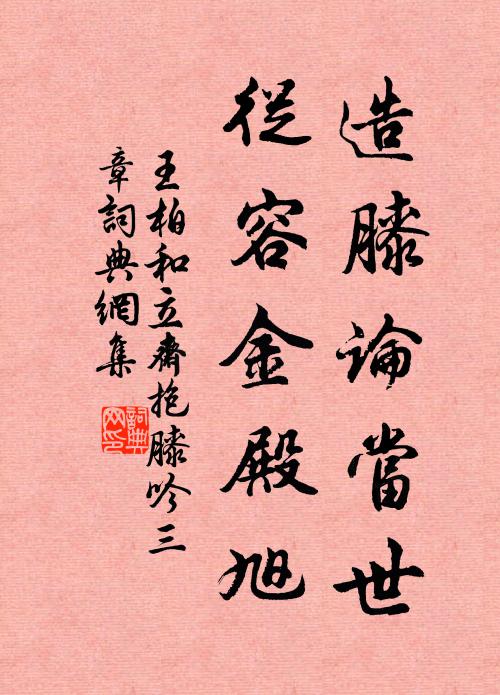 造膝論當世
從容金殿旭
王柏和立齋抱膝吟三
章詞典網集
詞典
网印